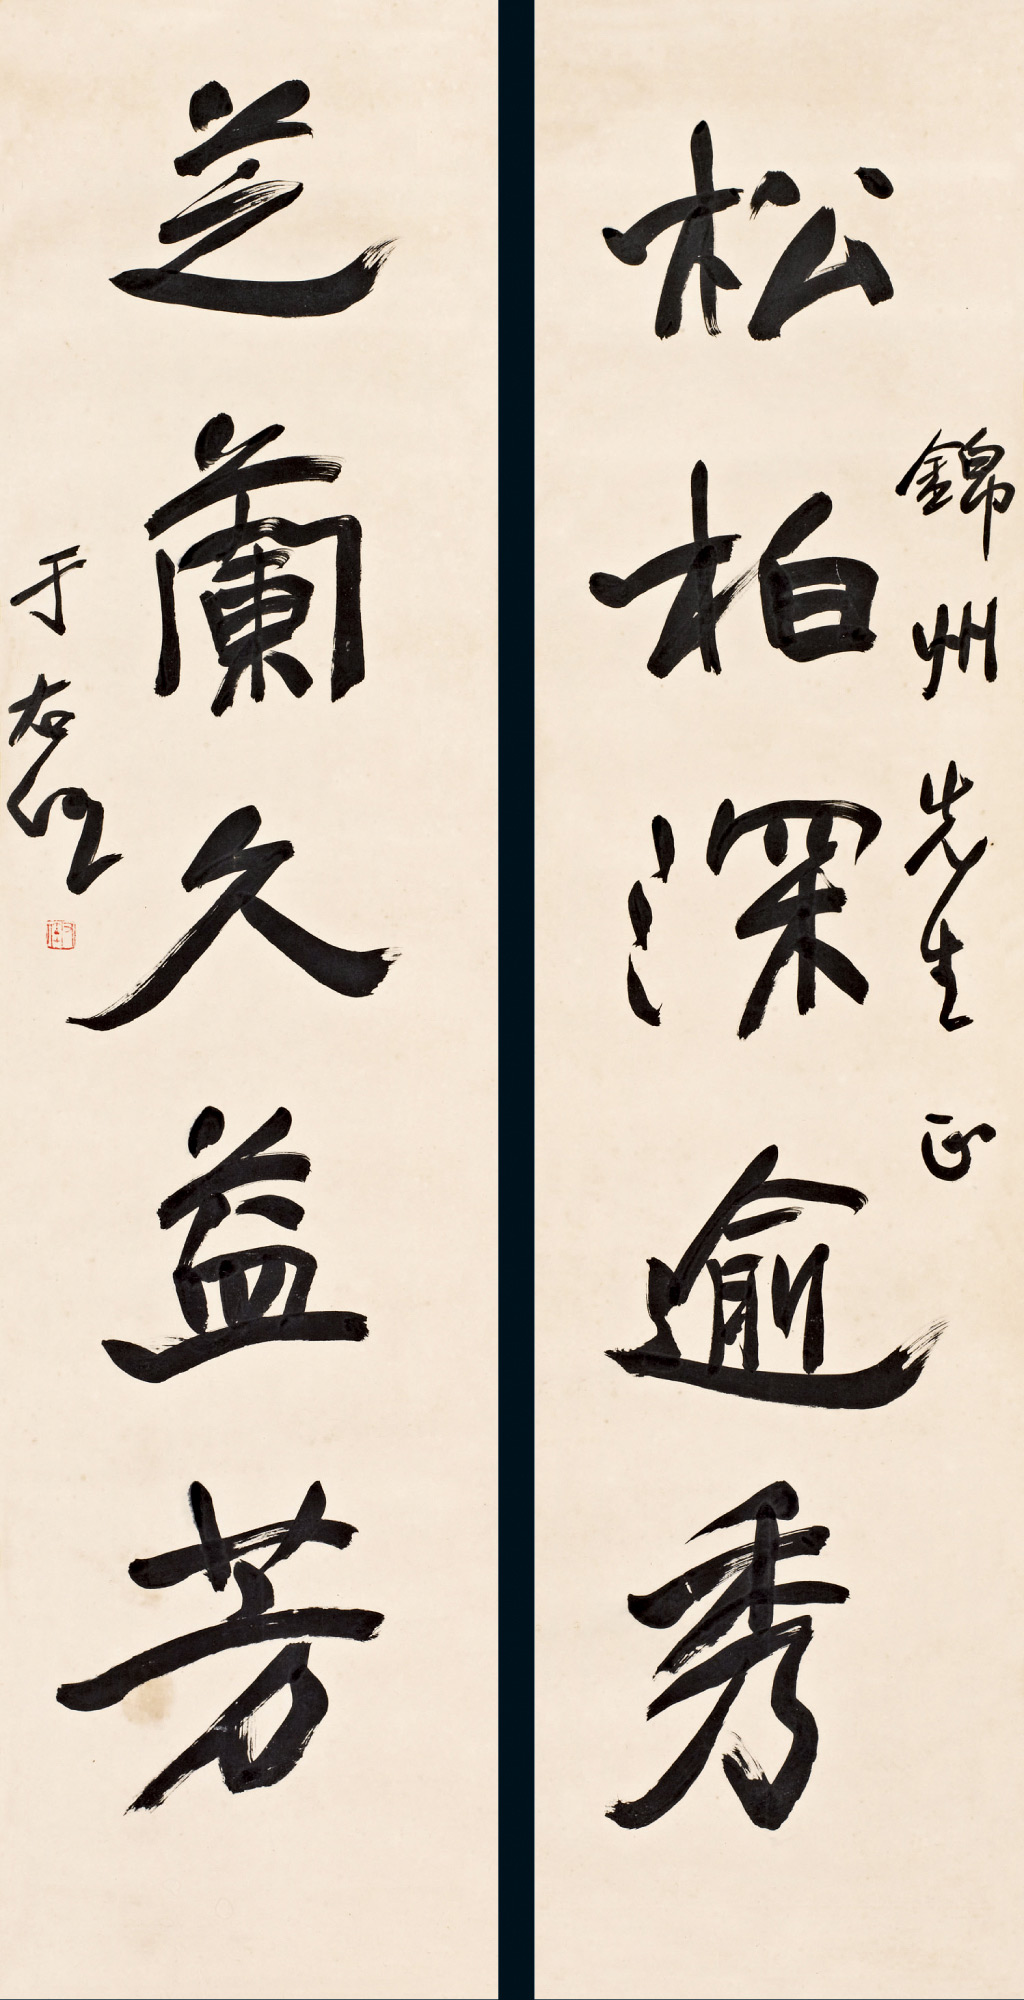 錦州先生正
松柏深逾秀
芝蘭久益芳
于右任